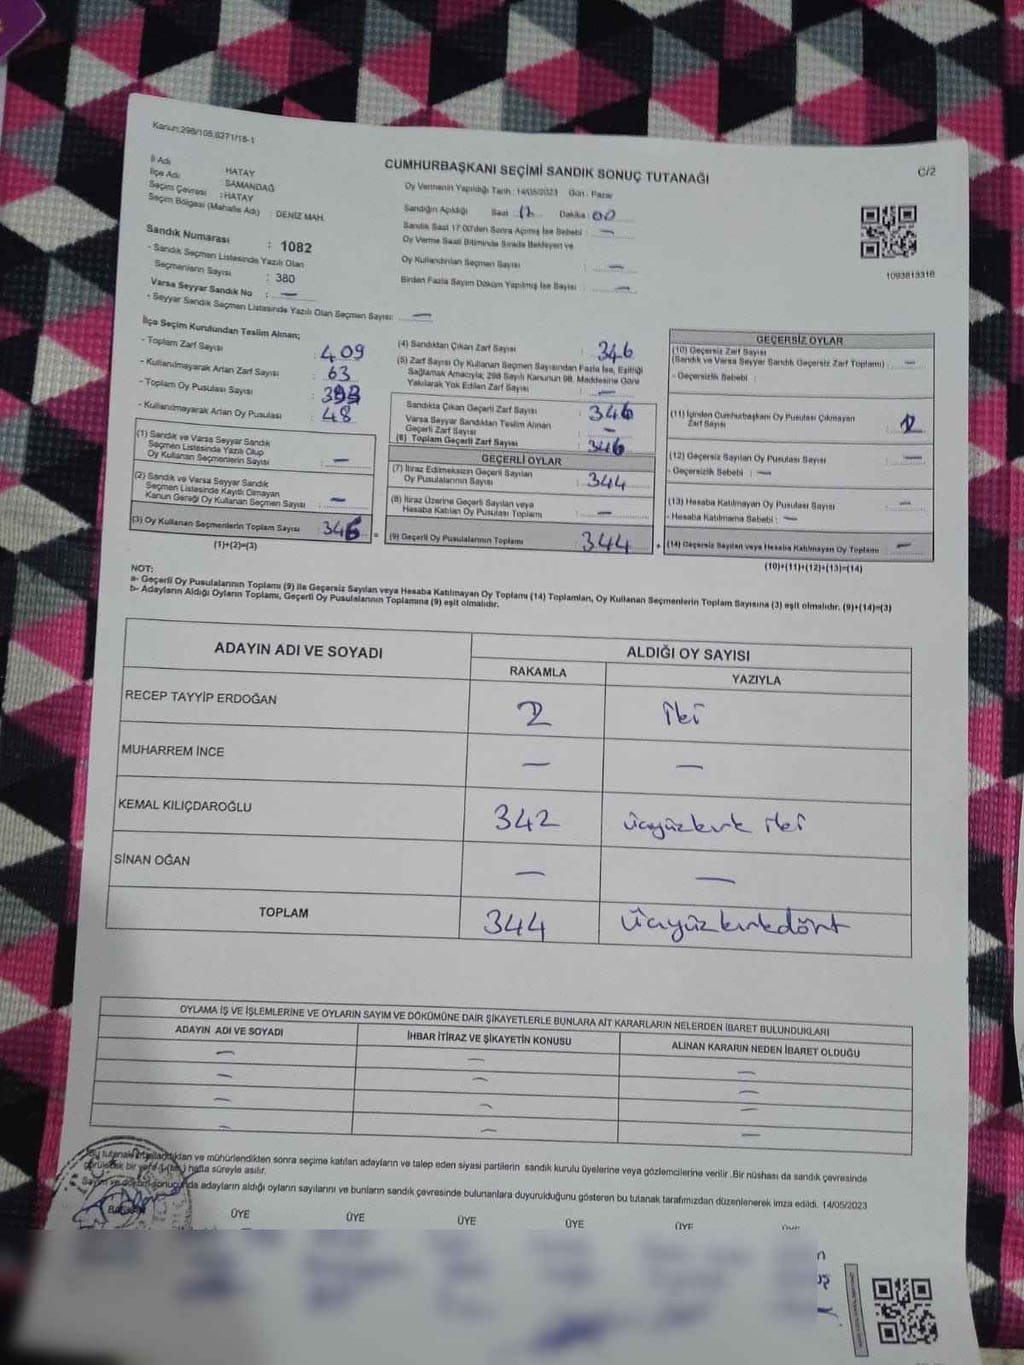 Kanun:298/105,6271/18-1
CUMHURBAŞKANI SEÇİMİ SANDIK SONUÇ TUTANAĞI
C/2
İl Adı : HATAY
İlçe Adı : SAMANDAĞ
Seçim Çevresi : HATAY
Seçim Bölgesi (Mahalle Adı) : DENİZ MAH.
Oy Vermenin Yapıldığı Tarih : 14/05/2023 Gün : Pazar
Sandığın Açıldığı Saat : 17 Dakika : 00
Sandık Saat 17:00'den Sonra Açılmış İse Sebebi : —
Oy Verme Saati Bitiminde Sırada Bekleyen ve
Oy Kullandırılan Seçmen Sayısı : —
Birden Fazla Sayım Döküm Yapılmış İse Sayısı : —
1093813316
Sandık Numarası : 1082
- Sandık Seçmen Listesinde Yazılı Olan
Seçmenlerin Sayısı : 380
Varsa Seyyar Sandık No : —
- Seyyar Sandık Seçmen Listesinde Yazılı Olan Seçmen Sayısı: —
İlçe Seçim Kurulundan Teslim Alınan;
- Toplam Zarf Sayısı : 409
- Kullanılmayarak Artan Zarf Sayısı : 63
- Toplam Oy Pusulası Sayısı :
- Kullanılmayarak Artan Oy Pusulası : 48
(1) Sandık ve Varsa Seyyar Sandık
Seçmen Listesinde Yazılı Olup
Oy Kullanan Seçmenlerin Sayısı : —
(2) Sandık ve Varsa Seyyar Sandık
Seçmen Listesinde Kayıtlı Olmayan
Kanun Gereği Oy Kullanan Seçmen Sayısı : —
(3) Oy Kullanan Seçmenlerin Toplam Sayısı : 346
(1)+(2)=(3)
(4) Sandıktan Çıkan Zarf Sayısı : 346
(5) Zarf Sayısı Oy Kullanan Seçmen Sayısından Fazla İse, Eşitliği
Sağlamak Amacıyla; 298 Sayılı Kanunun 98. Maddesine Göre
Yakılarak Yok Edilen Zarf Sayısı : —
Sandıkta Çıkan Geçerli Zarf Sayısı : 346
Varsa Seyyar Sandıktan Teslim Alınan
Geçerli Zarf Sayısı : —
(6) Toplam Geçerli Zarf Sayısı : 346
GEÇERLİ OYLAR
(7) İtiraz Edilmeksizin Geçerli Sayılan
Oy Pusulalarının Sayısı : 344
(8) İtiraz Üzerine Geçerli Sayılan veya
Hesaba Katılan Oy Pusulası Toplamı : —
(9) Geçerli Oy Pusulalarının Toplamı : 344
GEÇERSİZ OYLAR
(10) Geçersiz Zarf Sayısı
(Sandık ve Varsa Seyyar Sandık Geçersiz Zarf Toplamı) : —
- Geçersizlik Sebebi :
(11) İçinden Cumhurbaşkanı Oy Pusulası Çıkmayan
Zarf Sayısı : 2
(12) Geçersiz Sayılan Oy Pusulası Sayısı : —
- Geçersizlik Sebebi : —
(13) Hesaba Katılmayan Oy Pusulası Sayısı : —
- Hesaba Katılmama Sebebi : —
(14) Geçersiz Sayılan veya Hesaba Katılmayan Oy Toplamı : —
(10)+(11)+(12)+(13)=(14)
NOT:
a- Geçerli Oy Pusulalarının Toplamı (9) ile Geçersiz Sayılan veya Hesaba Katılmayan Oy Toplamı (14) Toplamları, Oy Kullanan Seçmenlerin Toplam Sayısına (3) eşit olmalıdır. (9)+(14)=(3)
b- Adayların Aldığı Oyların Toplamı, Geçerli Oy Pusulalarının Toplamına (9) eşit olmalıdır.
ADAYIN ADI VE SOYADI ALDIĞI OY SAYISI
RAKAMLA YAZIYLA
RECEP TAYYİP ERDOĞAN 2 iki
MUHARREM İNCE — —
KEMAL KILIÇDAROĞLU 342 üçyüzkırk iki
SİNAN OĞAN — —
TOPLAM 344 üçyüzkırkdört
OYLAMA İŞ VE İŞLEMLERİNE VE OYLARIN SAYIM VE DÖKÜMÜNE DAİR ŞİKAYETLERLE BUNLARA AİT KARARLARIN NELERDEN İBARET BULUNDUKLARI
ADAYIN ADI VE SOYADI İHBAR İTİRAZ VE ŞİKAYETİN KONUSU ALINAN KARARIN NEDEN İBARET OLDUĞU
— — —
— — —
— — —
— — —
Bu tutanak ve mühürlendikten sonra seçime katılan adayların ve talep eden siyasi partilerin sandık kurulu üyelerine veya gözlemcilerine verilir .Bir nüshası da sandık çevresinde
görülecek bir yere 1 (bir) hafta süreyle asılır.
Sayım ve döküm sonucunda adayların aldığı oyların sayılarını ve bunların sandık çevresinde bulunanlara duyurulduğunu gösteren bu tutanak tarafımızdan düzenlenerek imza edildi. 14/05/2023
Başkan ÜYE ÜYE ÜYE ÜYE ÜYE ÜYE